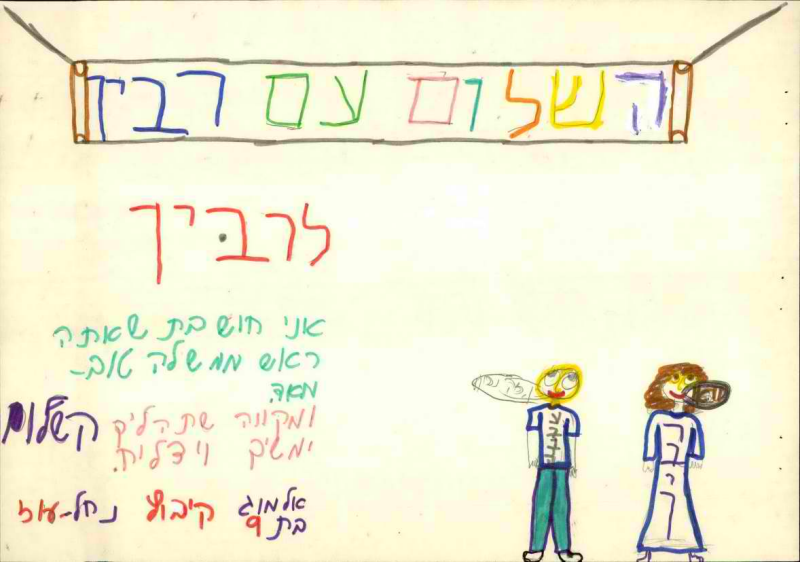 השלום עם רבין
לרביך
אני חושבת שאתה
ראש ממשלה טוב-
מאד.
ומקווה שתהליך השלום
ימשיך ויצליח.
אלמוג קיבוץ נחל-עוז
בת 9
רביך